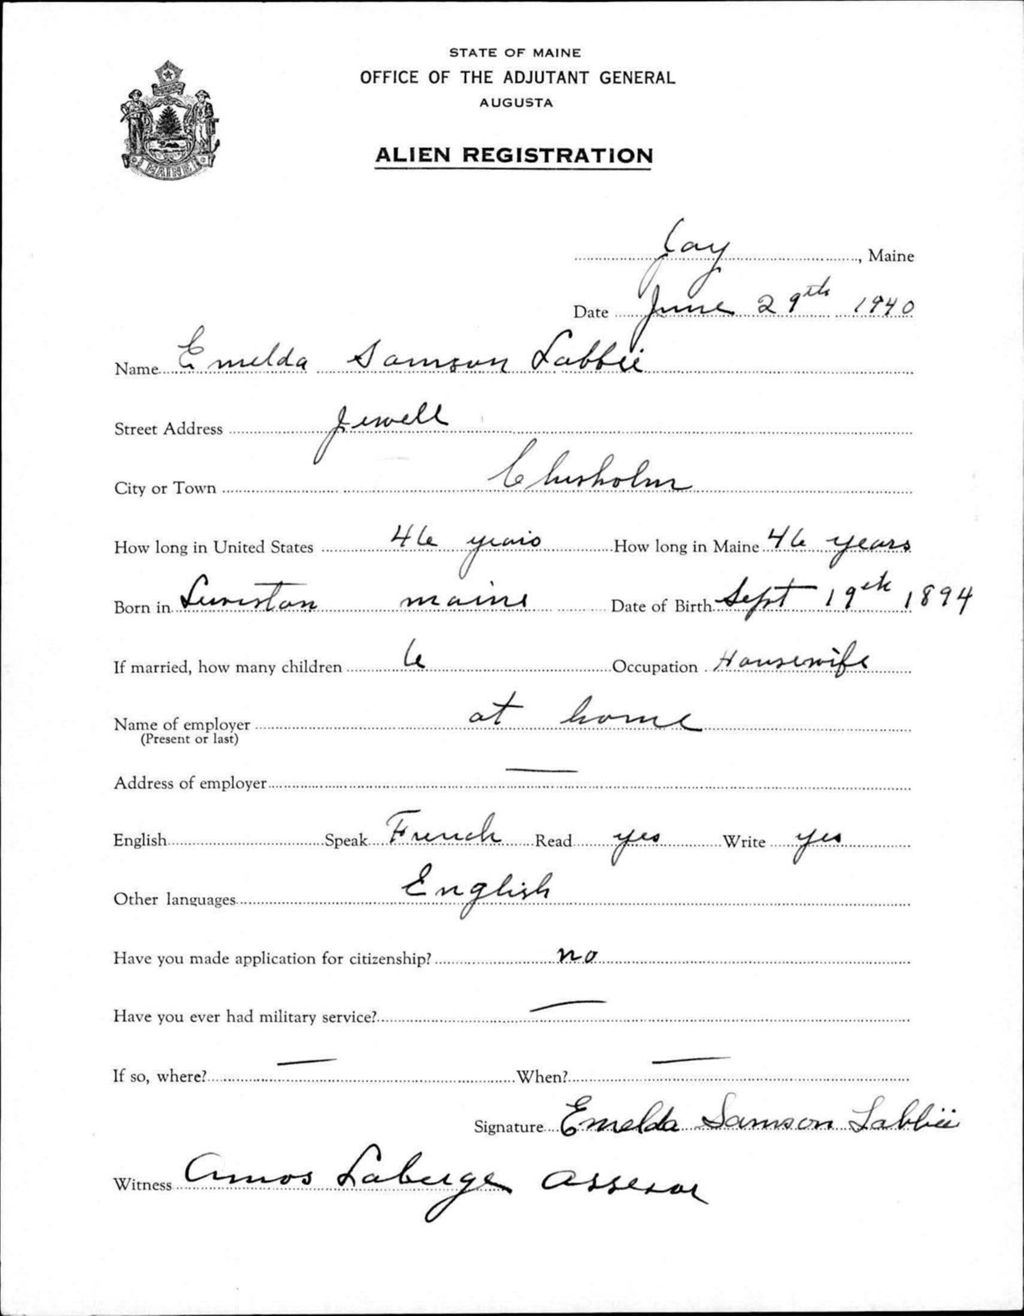 STATE OF MAINE
OFFICE OF THE ADJUTANT GENERAL
AUGUSTA
ALIEN REGISTRATION
MAINE
Jay, Maine
Date June 29th 1940
Name Emelda Samson Labbé
Street Address Jewell
City or Town Chisholm
How long in United States 46 years How long in Maine 46 years
Born in Lewiston maine Date of Birth Sept 19th 1894
If married, how many children 6 Occupation Housewife
Name of employer at home
(Present or last)
Address of employer —
English Speak French Read yes Write yes
Other languages English
Have you made application for citizenship? no
Have you ever had military service? —
If so, where? — When? —
Signature Emelda Samson Labbé
Witness Amos Laberge assessor